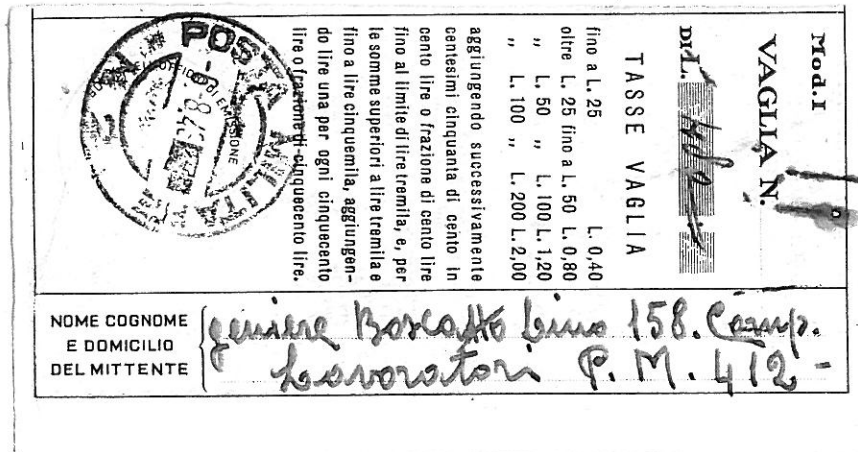 Mod. I
VAGLIA N.
DI L.
TASSE VAGLIA
fino a L. 25 L. 0,40
oltre L. 25 fino a L. 50 L. 0,80
„ L. 50 „ L. 100 L. 1,20
„ L. 100 „ L. 200 L. 2,00
aggiungendo successivamente
centesimi cinquanta di cento in
cento lire o frazione di cento lire
fino al limite di lire tremila, e, per
le somme superiori a lire tremila e
fino a lire cinquemila, aggiungen-
do lire una per ogni cinquecento
lire o frazione di cinquecento lire.
POSTA MILITARE
UFFICIO DI EMISSIONE
NOME COGNOME
E DOMICILIO
DEL MITTENTE
geniere Boscatto Lino 158. Comp.
Lavoratori P. M. 412 -